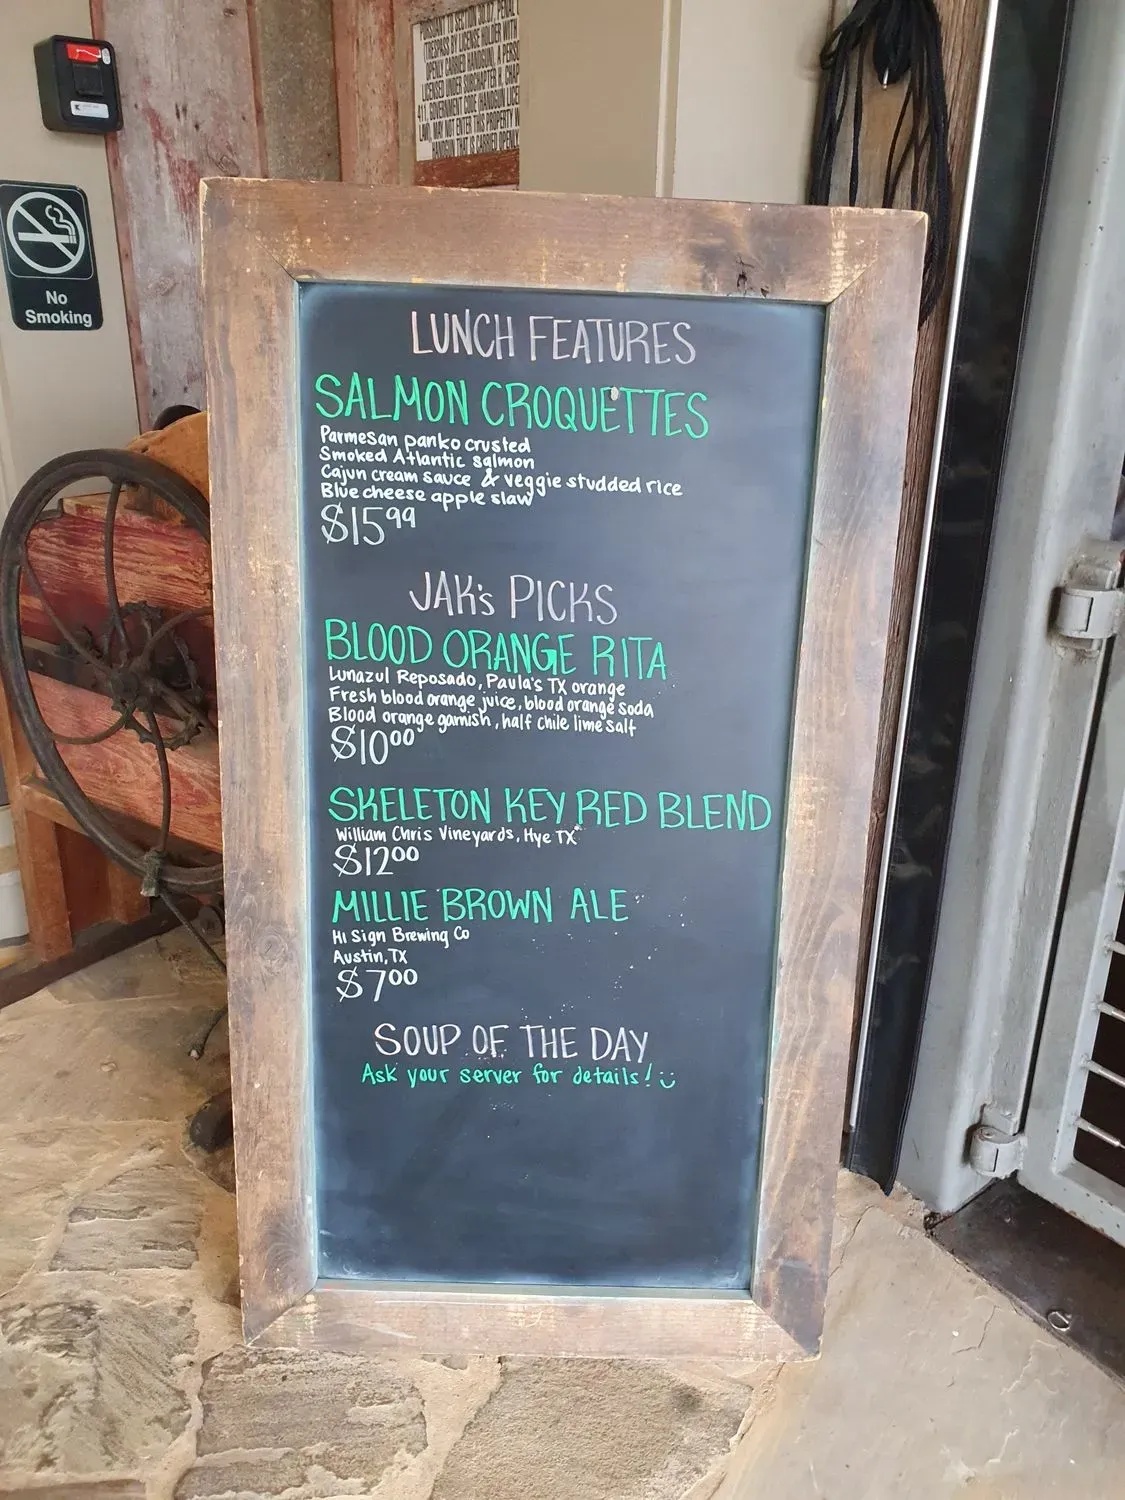 PURSUANT TO SECTION 30.07, PENAL
TRESPASS BY LICENSE HOLDER WITH
OPENLY CARRIED HANDGUN), A PERSO
LICENSED UNDER SUBCHAPTER H, CHAP
411, GOVERNMENT CODE HANDGUN LICE
LAW), MAY NOT ENTER THIS PROPERTY W
HANDGUN THAT IS CARRIED OPENLY
No
Smoking
LUNCH FEATURES
SALMON CROQUETTES
Parmesan panko crusted
Smoked Atlantic salmon
Cajun cream sauce & veggie studded rice
Blue cheese apple slaw
$15⁹⁹
JAK's PICKS
BLOOD ORANGE RITA
Lunazul Reposado, Paula's TX orange
Fresh blood orange juice, blood orange soda
Blood orange garnish, half chile lime salt
$10⁰⁰
SKELETON KEY RED BLEND
William Chris Vineyards, Hye TX
$12⁰⁰
MILLIE BROWN ALE
Hi Sign Brewing Co
Austin, TX
$7⁰⁰
SOUP OF THE DAY
Ask your server for details! ü